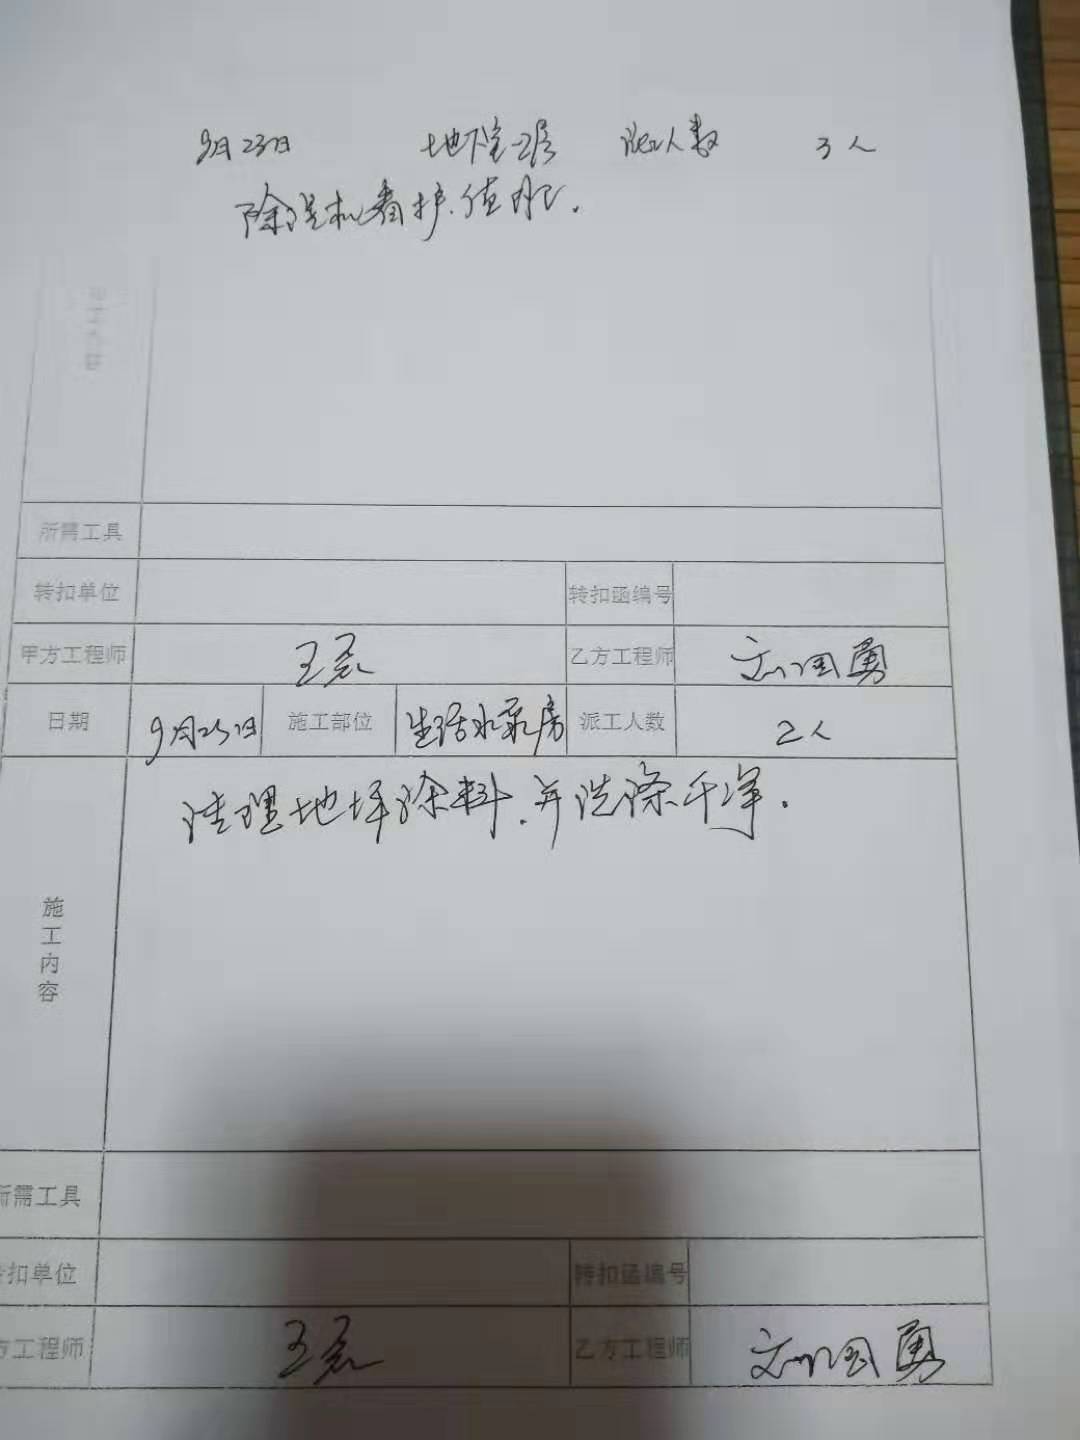 9月23日 地下室二层 派工人数 3人
除湿机看护.值班.
施工内容
所需工具
转扣单位 转扣函编号
甲方工程师 王磊 乙方工程师 刘国勇
日期 9月25日 施工部位 生活水泵房 派工人数 2人
清理地坪涂料.并洗涤干净.
施工内容
所需工具
转扣单位 转扣函编号
方工程师 王磊 乙方工程师 刘国勇